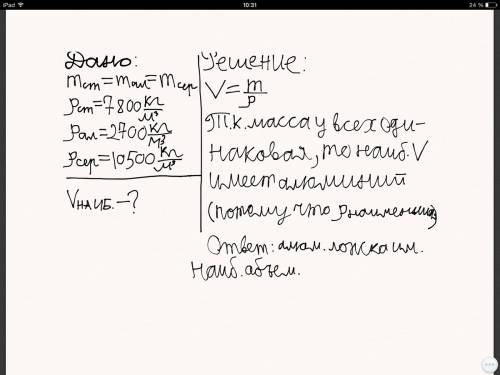 iPad
10:31
24 %
Дано:
mст=mал=mсер
ρст=7800 кг/м³
ρал=2700 кг/м³
ρсер=10500 кг/м³
Vнаиб.-?
Решение:
V=m/ρ
Т.к. масса у всех оди-
наковая, то наиб. V
имеет алюминий
(потому что ρ наименьшая)
Ответ: алюм. ложка им.
наиб. объем.